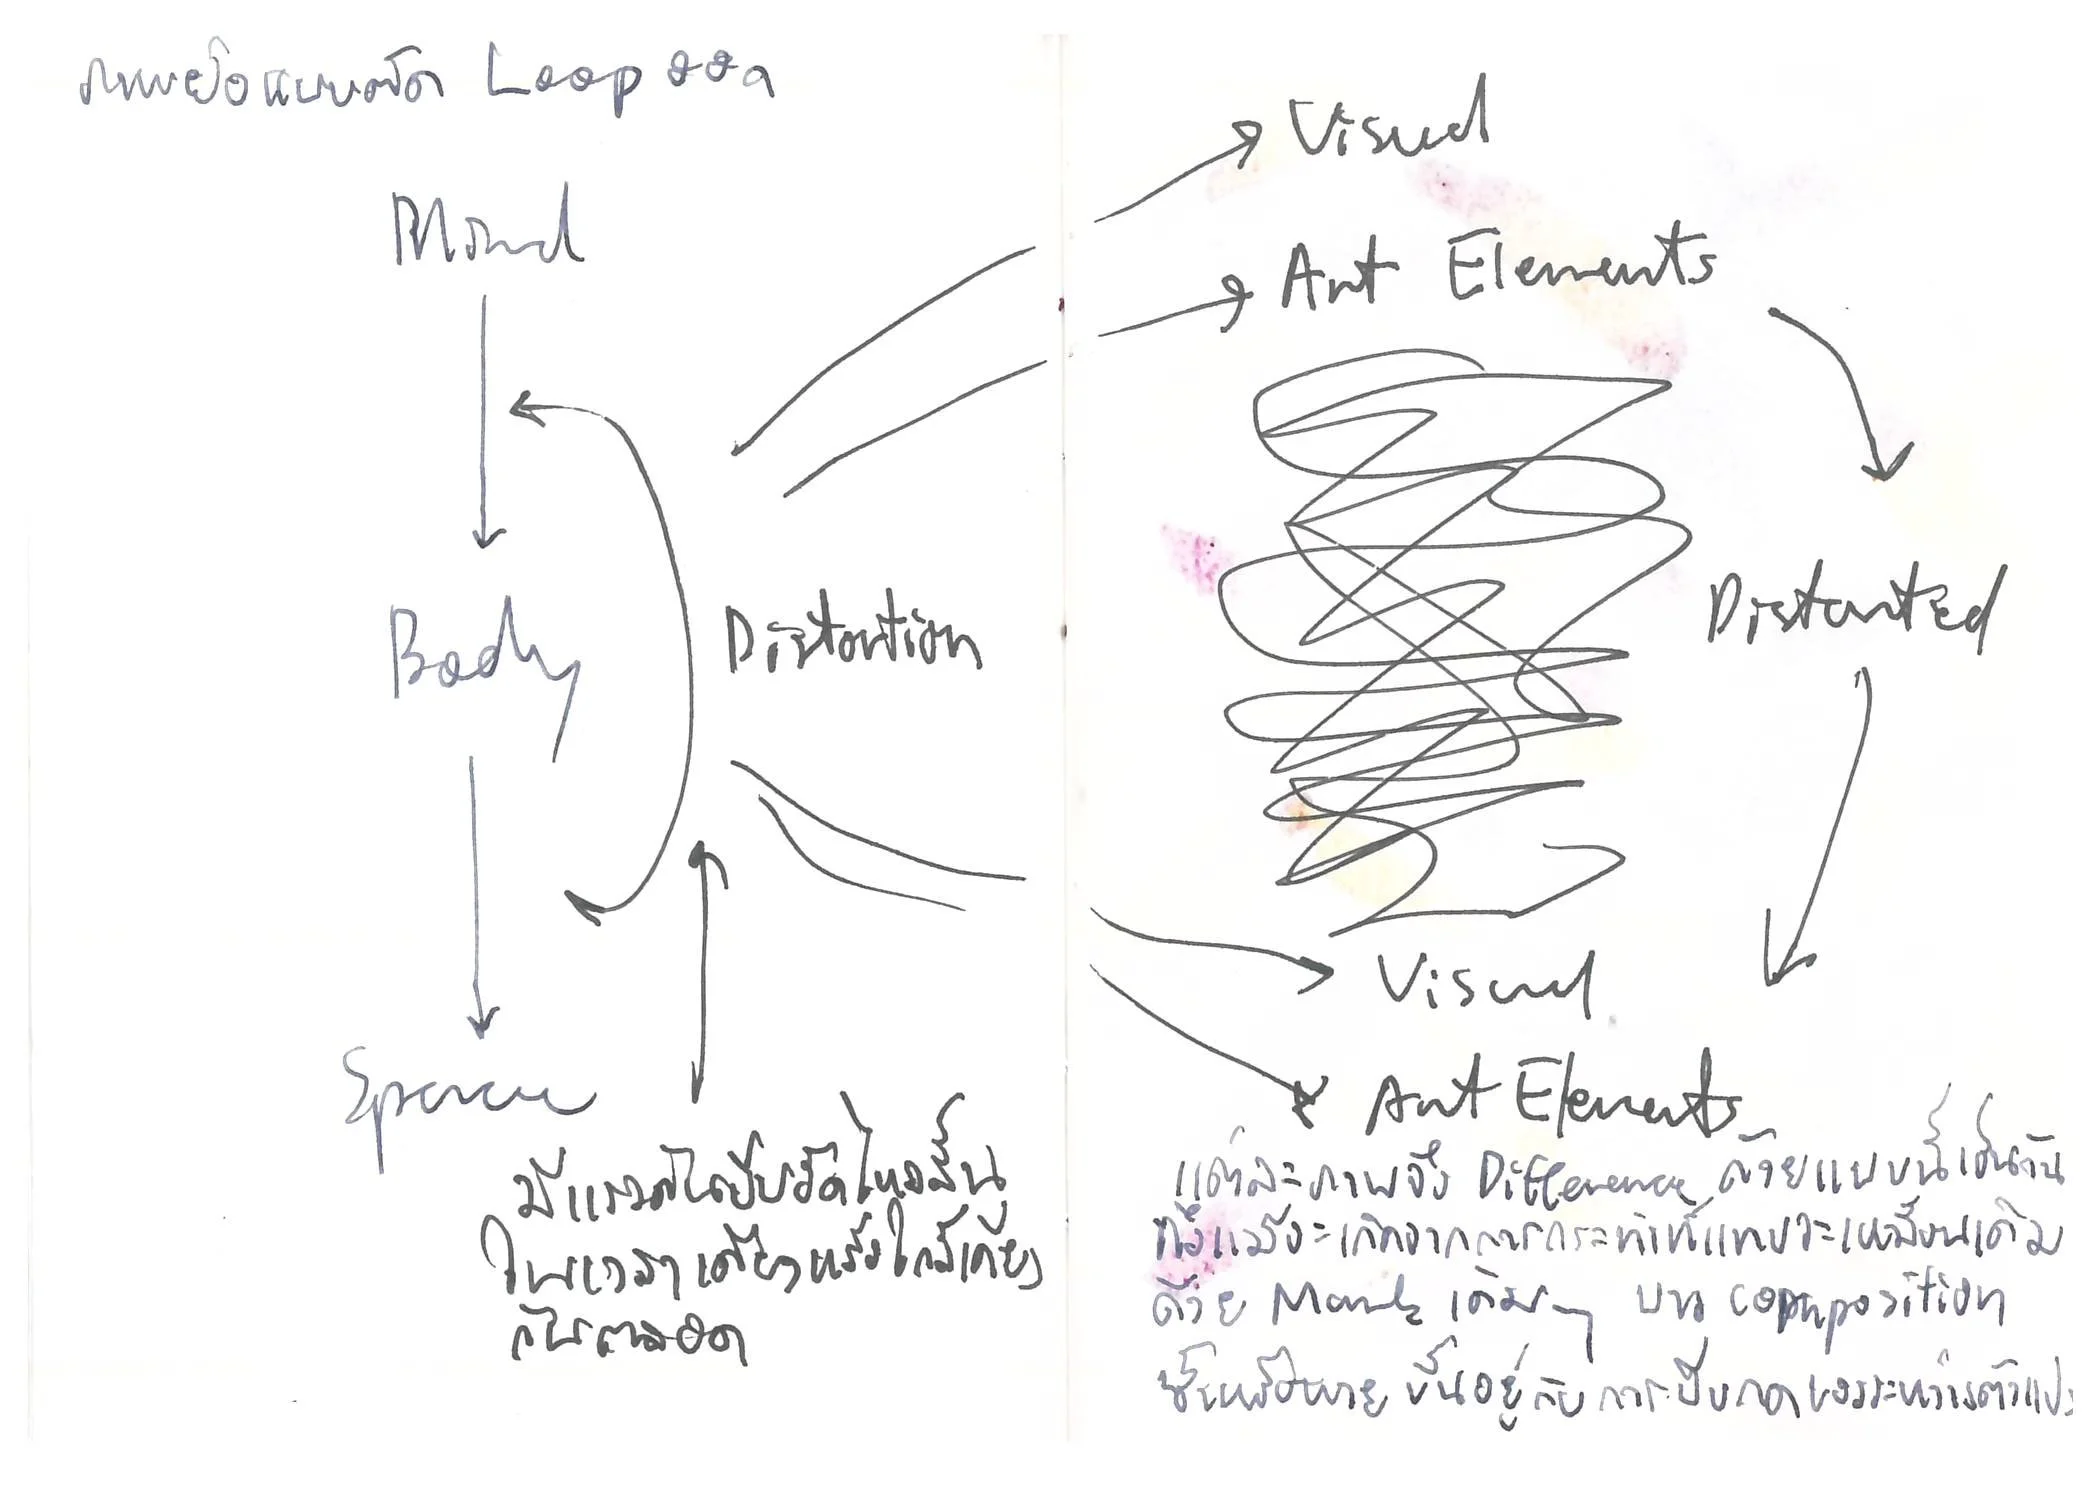 ภาพย่อแบบตัด Loop ออก
Mind
Body
Space
Distortion
มีแรงดันบีบรัดไหลลื่น
ในเวลาเดียวหรือใกล้เคียง
กันตลอด
Visual
Art Elements
Distorted
Visual
Art Elements
แต่ละภาพจึง Difference ด้วยแบบนี้เช่นกัน
ถึงแม้จะเกิดจากการกระทำที่แทบจะเหมือนเดิม
ด้วย Mark เดิมๆ บน composition
ขึ้นอยู่กับการบีบกดของระหว่างตัวแปร